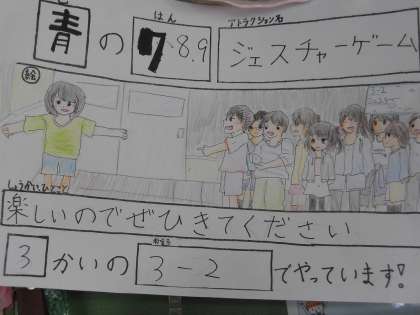 青の7、8.9
はん
アトラクション名
ジェスチャーゲーム
絵
3-2
しょうかいひとこと
楽しいのでぜひきてください
3かいの3-2でやっています!